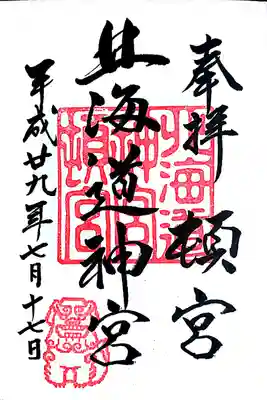 奉拝 頓宮
北海道神宮
平成廿九年七月十七日
北海道神宮頓宮